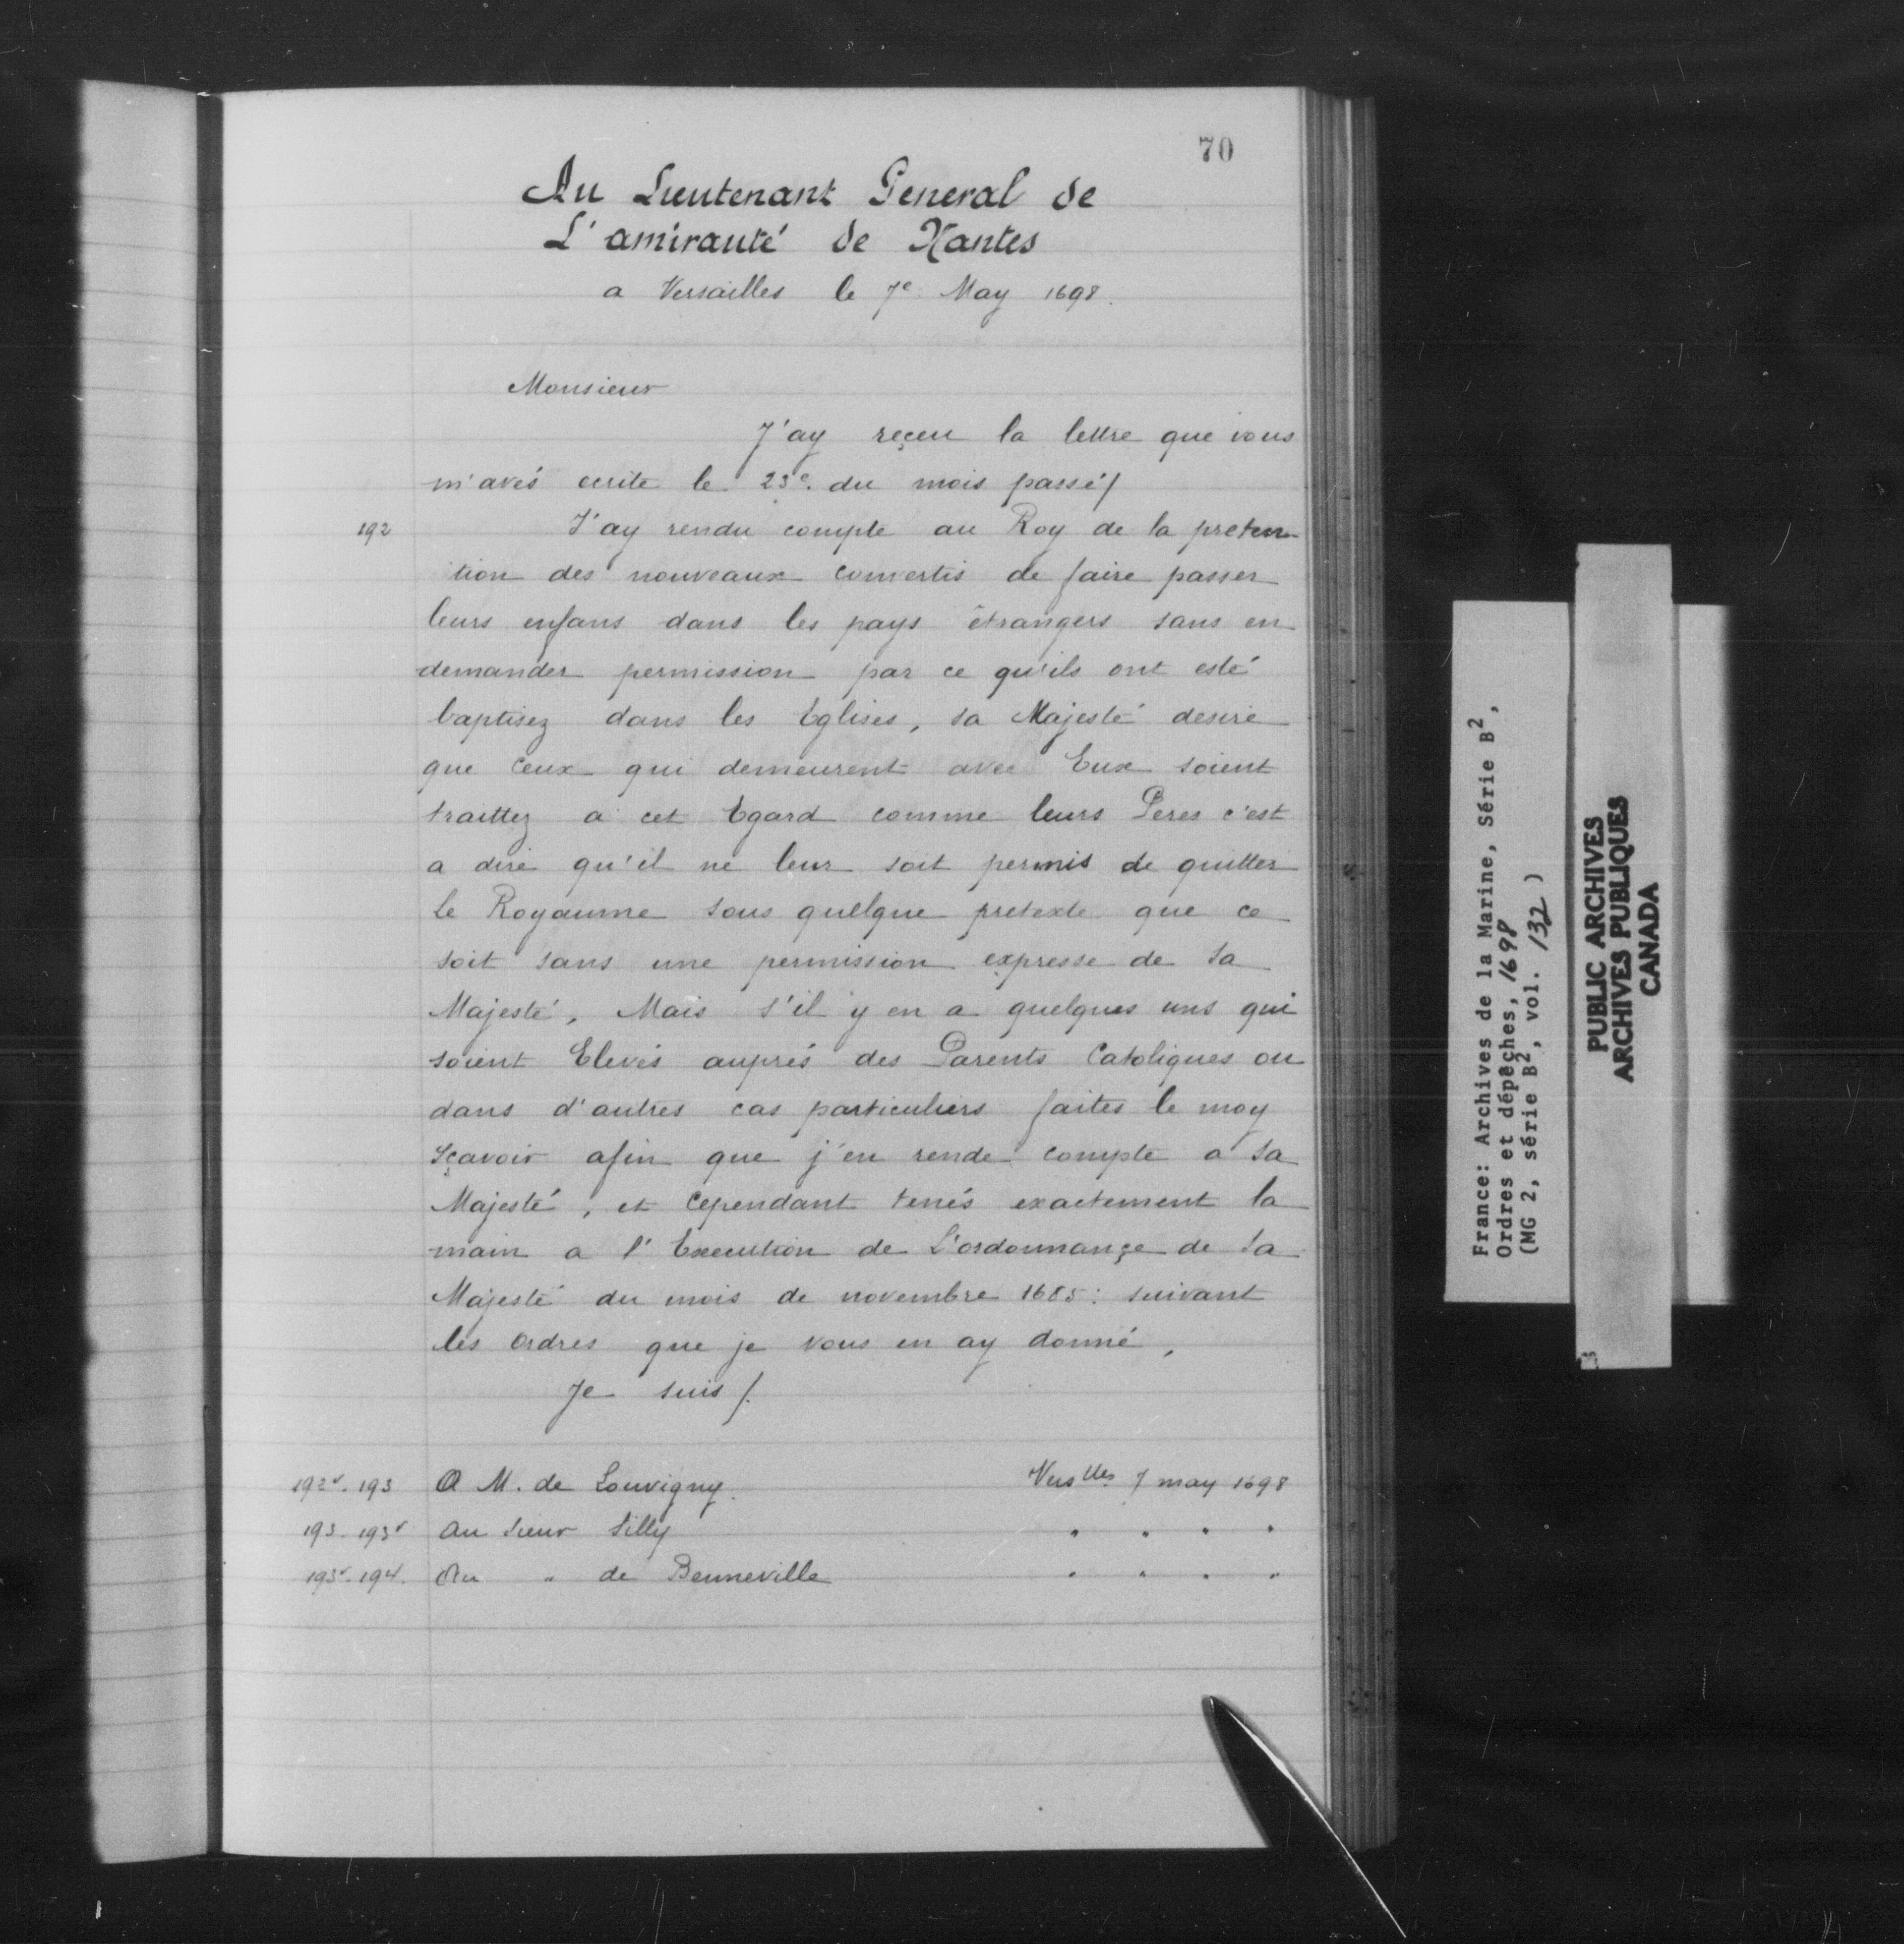 70
Au Lieutenant General de
L'amirauté de Nantes
a Versailles le 7e May 1698.
Monsieur
J'ay reçeu la lettre que vous
m'avés ecrite le 23e. du mois passé/
192 J'ay rendu compte au Roy de la preten-
tion des nouveaux convertis de faire passer
leurs enfans dans les pays étrangers sans en
demander permission par ce qu'ils ont esté
baptisez dans les Eglises, sa Majesté desire
que ceux qui demeurent avec Eux soient
traittez a cet Egard comme leurs Peres c'est
a dire qu'il ne leur soit permis de quitter
le Royaume sous quelque pretexte que ce
soit sans une permission expresse de sa
Majesté, Mais s'il y en a quelques uns qui
soient Elevés auprés des Parents Catoliques ou
dans d'autres cas particuliers faites le moy
sçavoir afin que j'en rende compte a sa
Majesté, et cependant tenés exactement la
main a l'Execution de L'ordonnançe de sa
Majesté du mois de novembre 1685: suivant
les ordres que je vous en ay donné,
Je suis /.
192v. 193 A M. de Louvigny. Verslles 7 may 1698
193-193v Au sieur Silly " " " "
193v-194. Au " de Benneville " " " "
France: Archives de la Marine, Série B2,
Ordres et dépêches, 1698
(MG 2, série B2, vol. 132)
PUBLIC ARCHIVES
ARCHIVES PUBLIQUES
CANADA